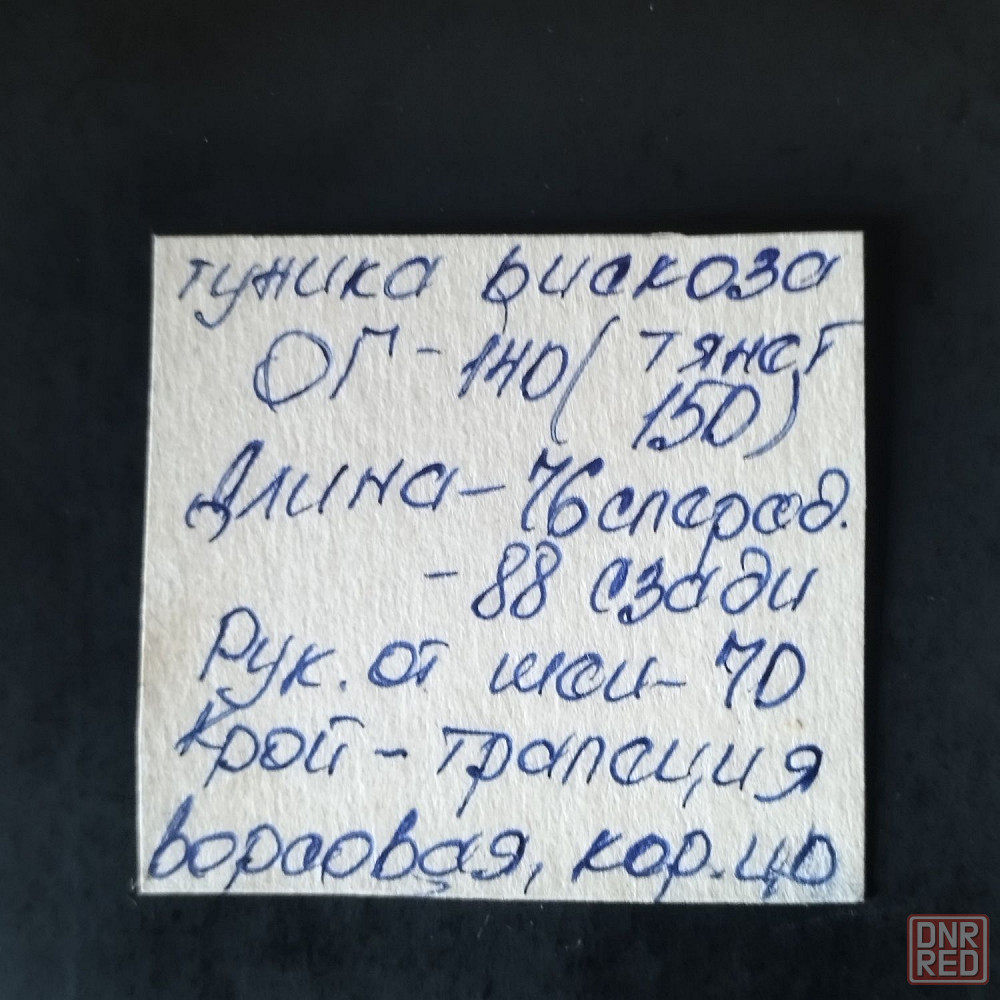 туника вискоза
ОГ - 140 ( тянет
150)
Длина - 76 сперед.
- 88 сзади
Рук. от шеи - 70
Крой - трапеция
ворсовая, кор. цв
DNR
RED